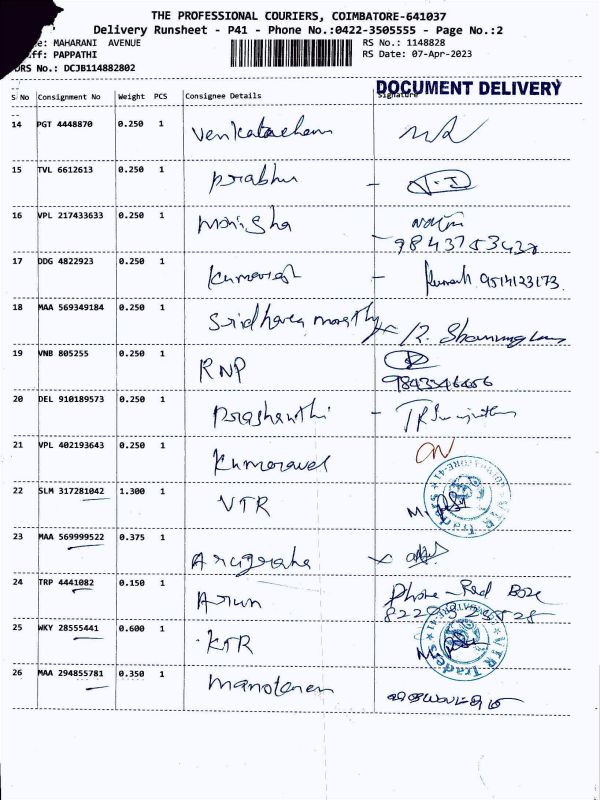 THE PROFESSIONAL COURIERS, COIMBATORE-641037
Delivery Runsheet - P41 - Phone No.:0422-3505555 - Page No.:2
MAHARANI AVENUE RS No.: 1148828
PAPPATHI RS Date: 07-Apr-2023
DRS No.: DCJB114882802
DOCUMENT DELIVERY
S No Consignment No Weight PCS Consignee Details Signature
14 PGT 4448870 0.250 1 Venkatachem
15 TVL 6612613 0.250 1 prabhu
16 VPL 217433633 0.250 1 Monisha
17 DDG 4822923 0.250 1 Kumaresh Kumaresh 9514123173
18 MAA 569349184 0.250 1 Sridhara moorthy R. Shanmugam
19 VNB 805255 0.250 1 RNP
20 DEL 910189573 0.250 1 Prashanthi
21 VPL 402193643 0.250 1 Kumaravel
22 SLM 317281042 1.300 1 VTR
COIMBATORE-41 VTR Traders
23 MAA 569999522 0.375 1 Anugraha
24 TRP 4441082 0.150 1 Arun Phone - Red Boxe
25 WKY 28555441 0.600 1 KTR
COIMBATORE-41 VTR Traders
26 MAA 294855781 0.350 1